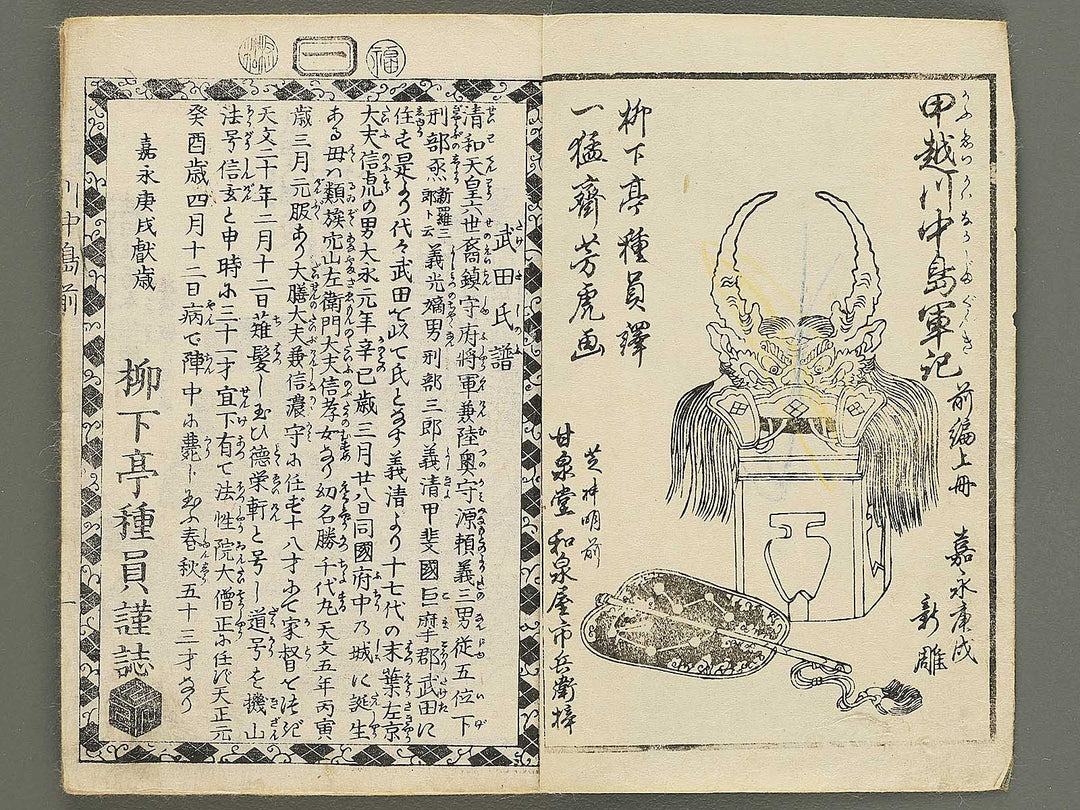 甲越川中島軍記 前編上冊
嘉永庚戌
新雕
柳下亭種員譯
一猛齋芳虎画
芝神明前
甘泉堂 和泉屋市兵衛梓
福
一
武田氏譜
清和天皇六世裔鎮守府将軍兼陸奥守源頼義三男従五位下
刑部丞新羅三郎ト云義光嫡男刑部三郎義清甲斐國巨摩郡武田に
住す是より代々武田を以て氏となす義清より十七代の末葉左京
大夫信虎の男大永元年辛巳歳三月廿八日同國府中乃城に誕生
ある母ハ類族穴山左衛門大夫信孝女なり幼名勝千代丸天文五年丙寅
歳三月元服あり大膳大夫兼信濃守に任ず十八才にて家督をつぎ
天文二十年二月十二日薙髪し玉ひ徳栄軒と号し道号を機山
法号信玄と申時に三十一才宣下有て法性院大僧正に任ず天正元
癸酉歳四月十二日病て陣中に薨じ玉ふ春秋五十三才なり
嘉永庚戌獻歳
柳下亭種員謹誌
川中島前
一